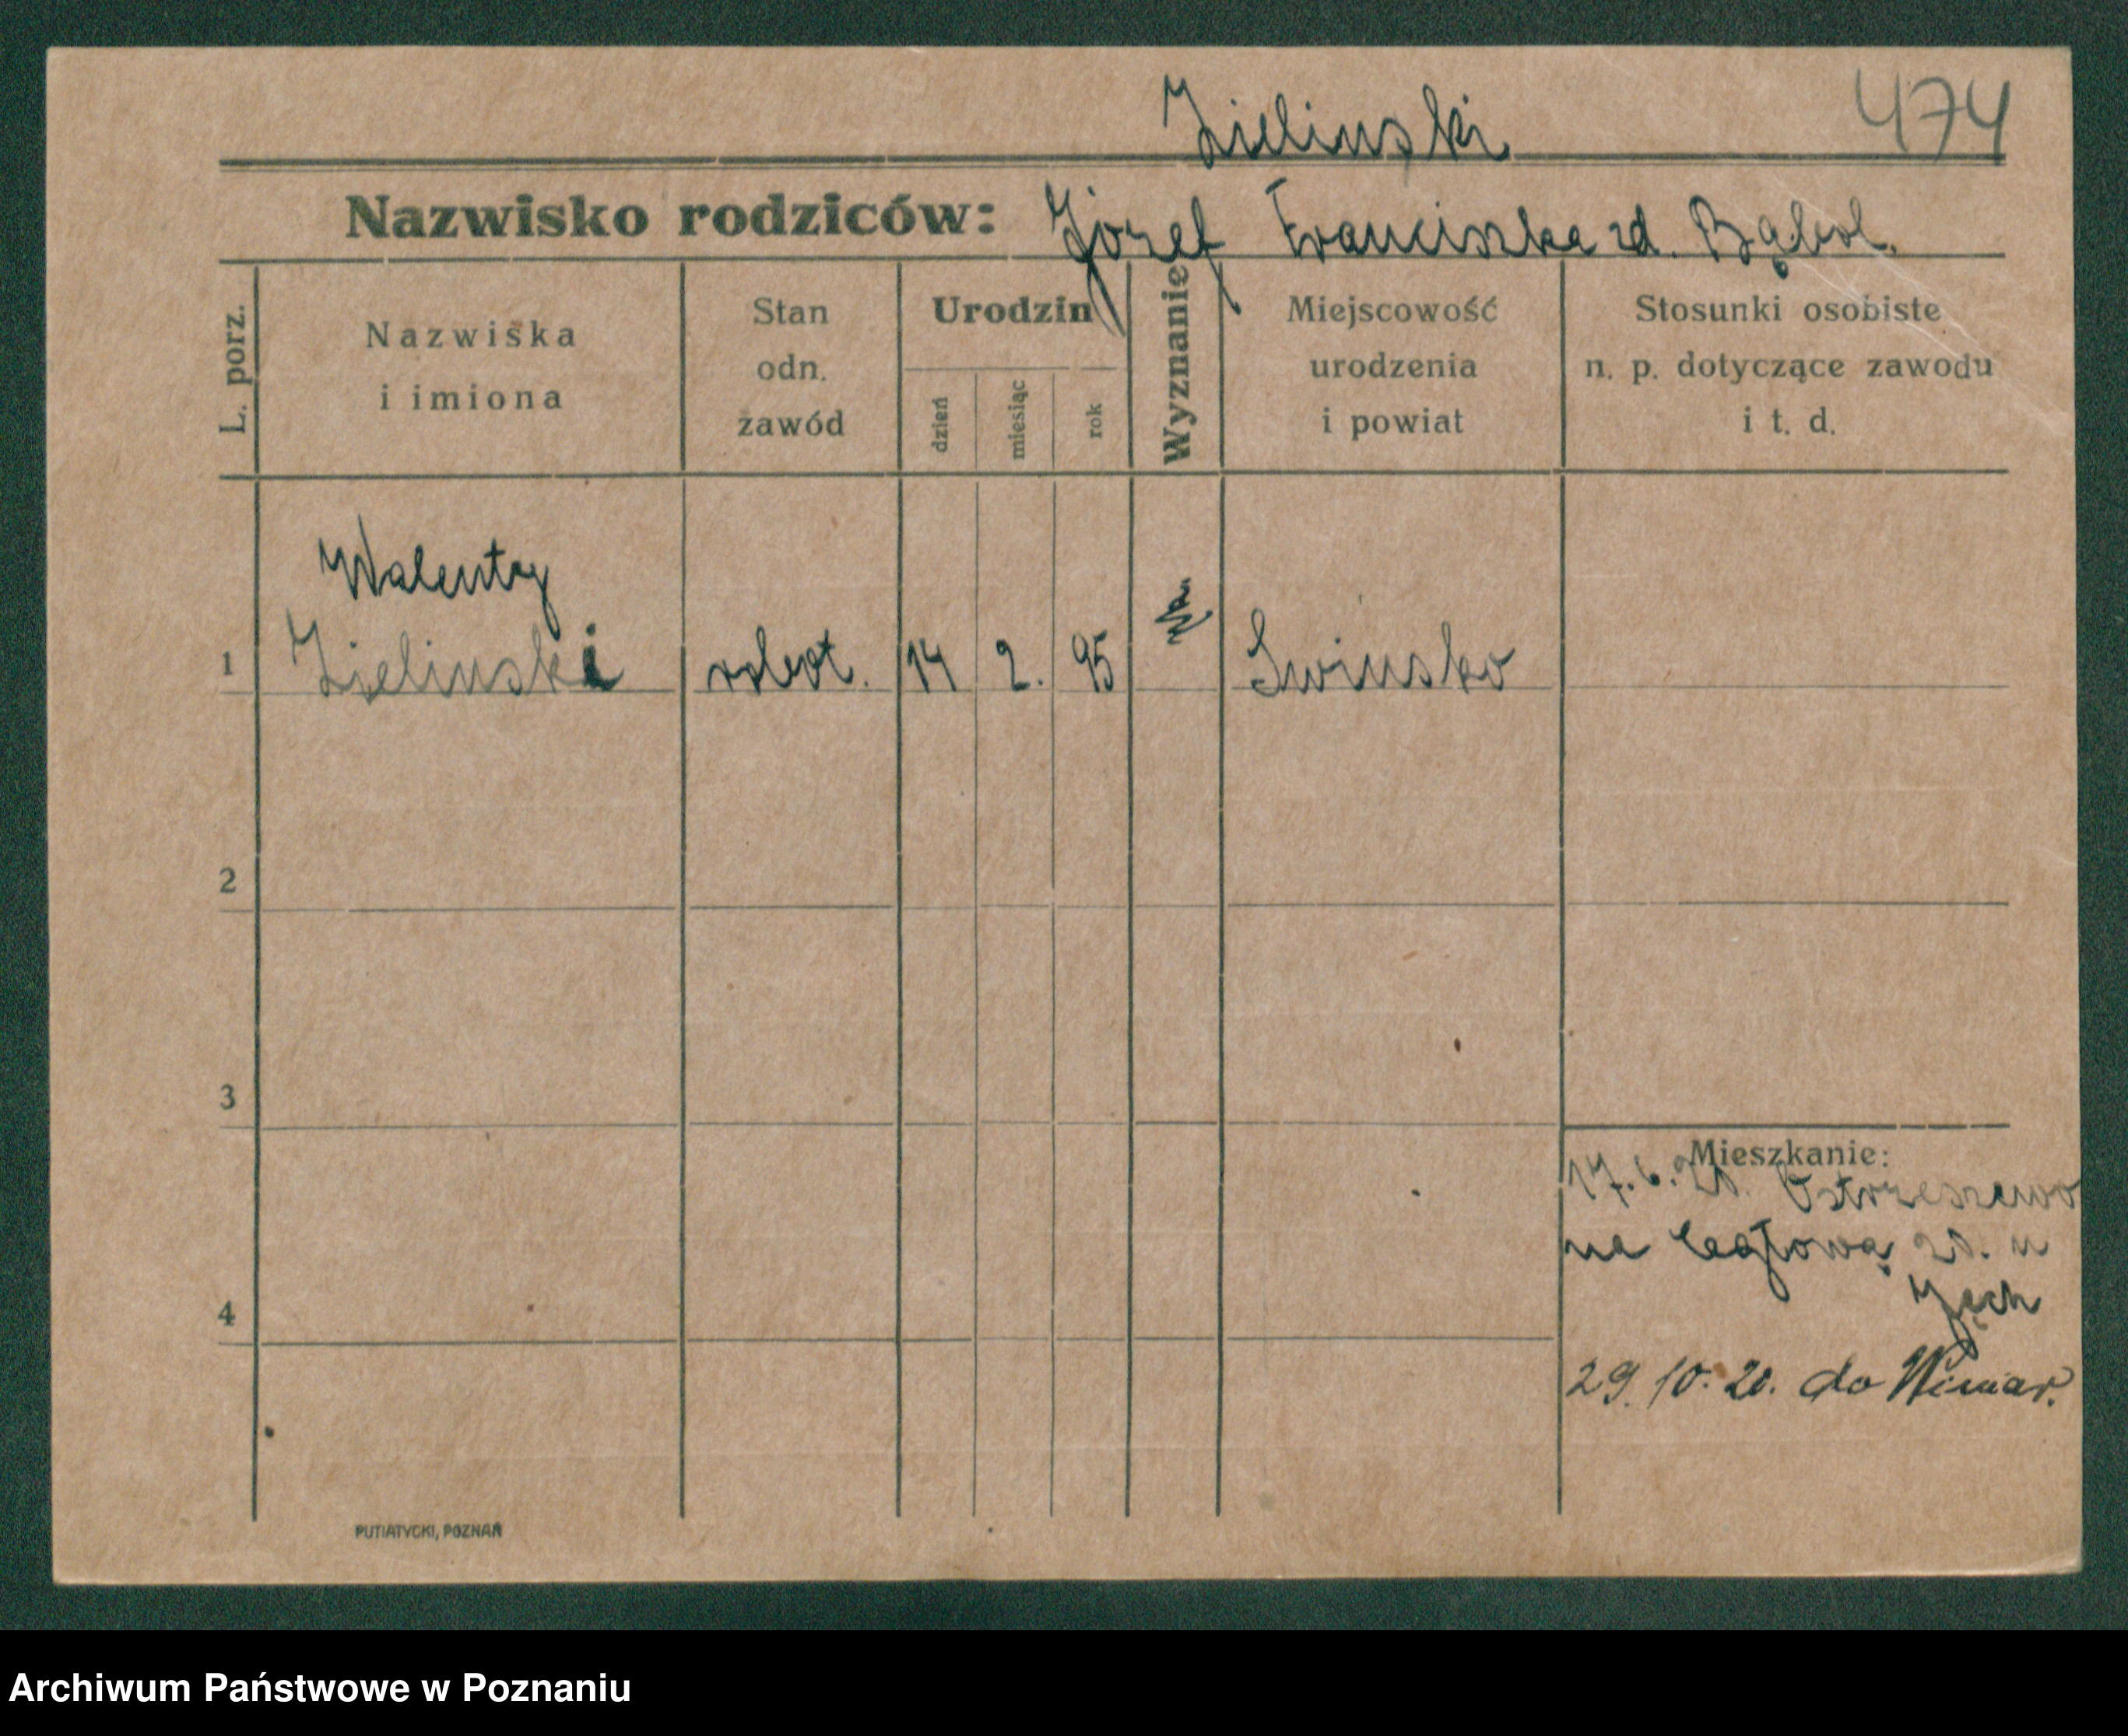 Zielinski 474
Nazwisko rodziców: Józef Franciszka zd. Bąbol.
L. porz.
Nazwiska
i imiona
Stan
odn.
zawód
Urodzin
dzień
miesiąc
rok
Wyznanie
Miejscowość
urodzenia
i powiat
Stosunki osobiste
n. p. dotyczące zawodu
i t. d.
Walenty
1 Zielinski robot. 14 2. 95 Swinsko
2
3
Mieszkanie:
17. 6. 20. Ostrzeszewo
na 20. u
4
29. 10. 20. do Winiar.
PUTIATYCKI, POZNAŃ
Archiwum Państwowe w Poznaniu